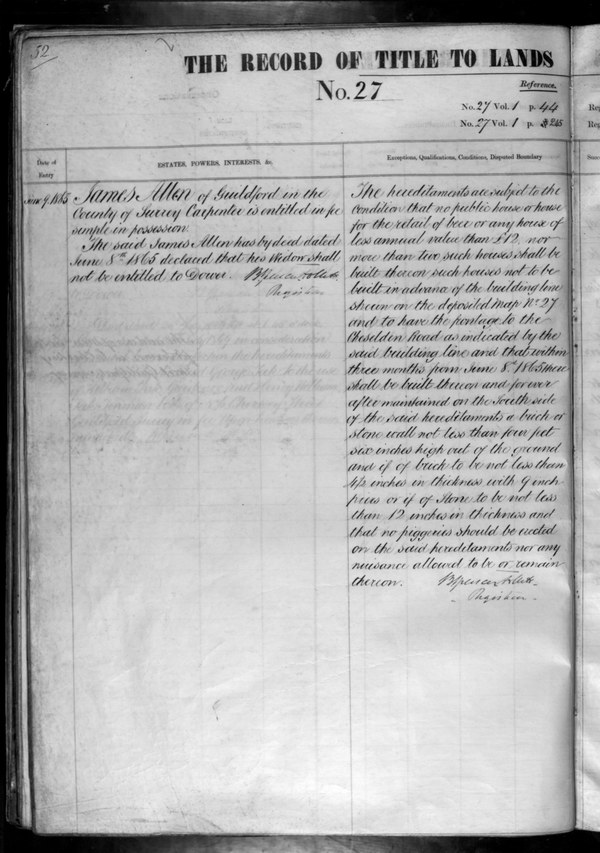 52
THE RECORD OF TITLE TO LANDS
No. 27
Reference.
No. 27 Vol. 1 p. 44
No. 27 Vol. 1 p. 245
Date of
Entry
ESTATES, POWERS, INTERESTS, &c.
Exceptions, Qualifications, Conditions, Disputed Boundary
June 9. 1865
James Allen of Guildford in the
County of Surrey Carpenter is entitled in fee
simple in possession.
The said James Allen has by deed dated
June 8th 1865 declared that his Widow shall
not be entitled to Dower. B Spencer Follett
Registrar
The hereditaments are subject to the
Condition that no public house or house
for the retail of beer or any house of
less annual value than £12, nor
more than two such houses shall be
built thereon such houses not to be
built in advance of the building line
shewn on the deposited Map No. 27
and to have the frontage to the
Cheselden Road as indicated by the
said building line and that within
three months from June 8th 1865 there
shall be built thereon and for ever
after maintained on the South side
of the said hereditaments a brick or
stone wall not less than four feet
six inches high out of the ground
and if of brick to be not less than
4½ inches in thickness with 9 inch
piers or if of Stone to be not less
than 12 inches in thickness and
that no piggeries should be erected
on the said hereditaments nor any
nuisance allowed to be or remain
thereon. B Spencer Follett
Registrar.